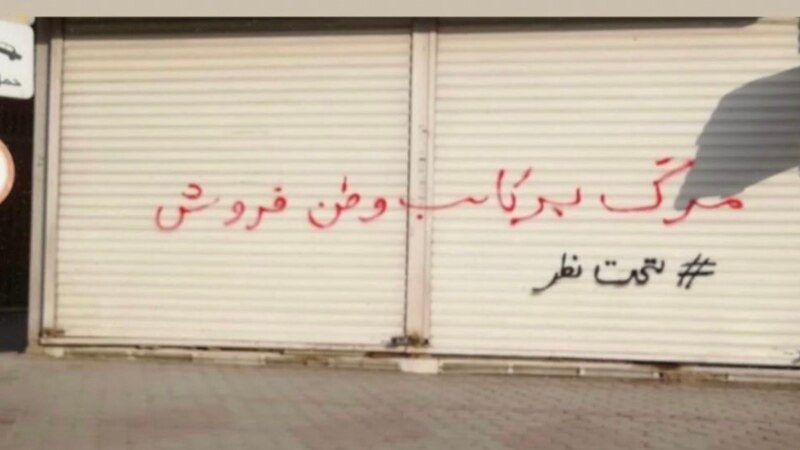 مرگ بر کاسب وطن فروش
# تحت نظر
حمل